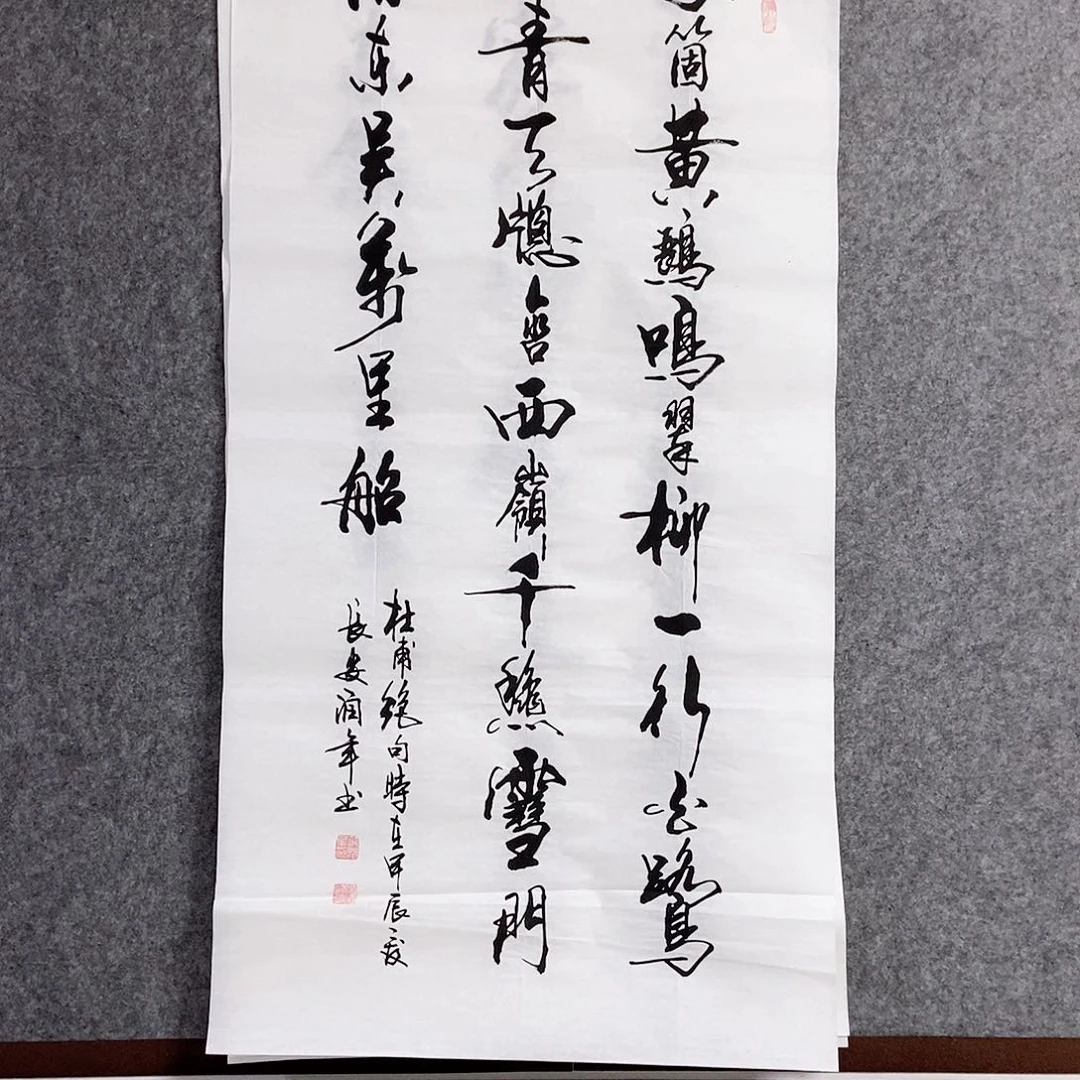 箇黃鸝鳴翠柳一行白鷺
青天窻含西嶺千秋雪門
東吳萬里船
杜甫絕句時在甲辰夏
長安潤年书